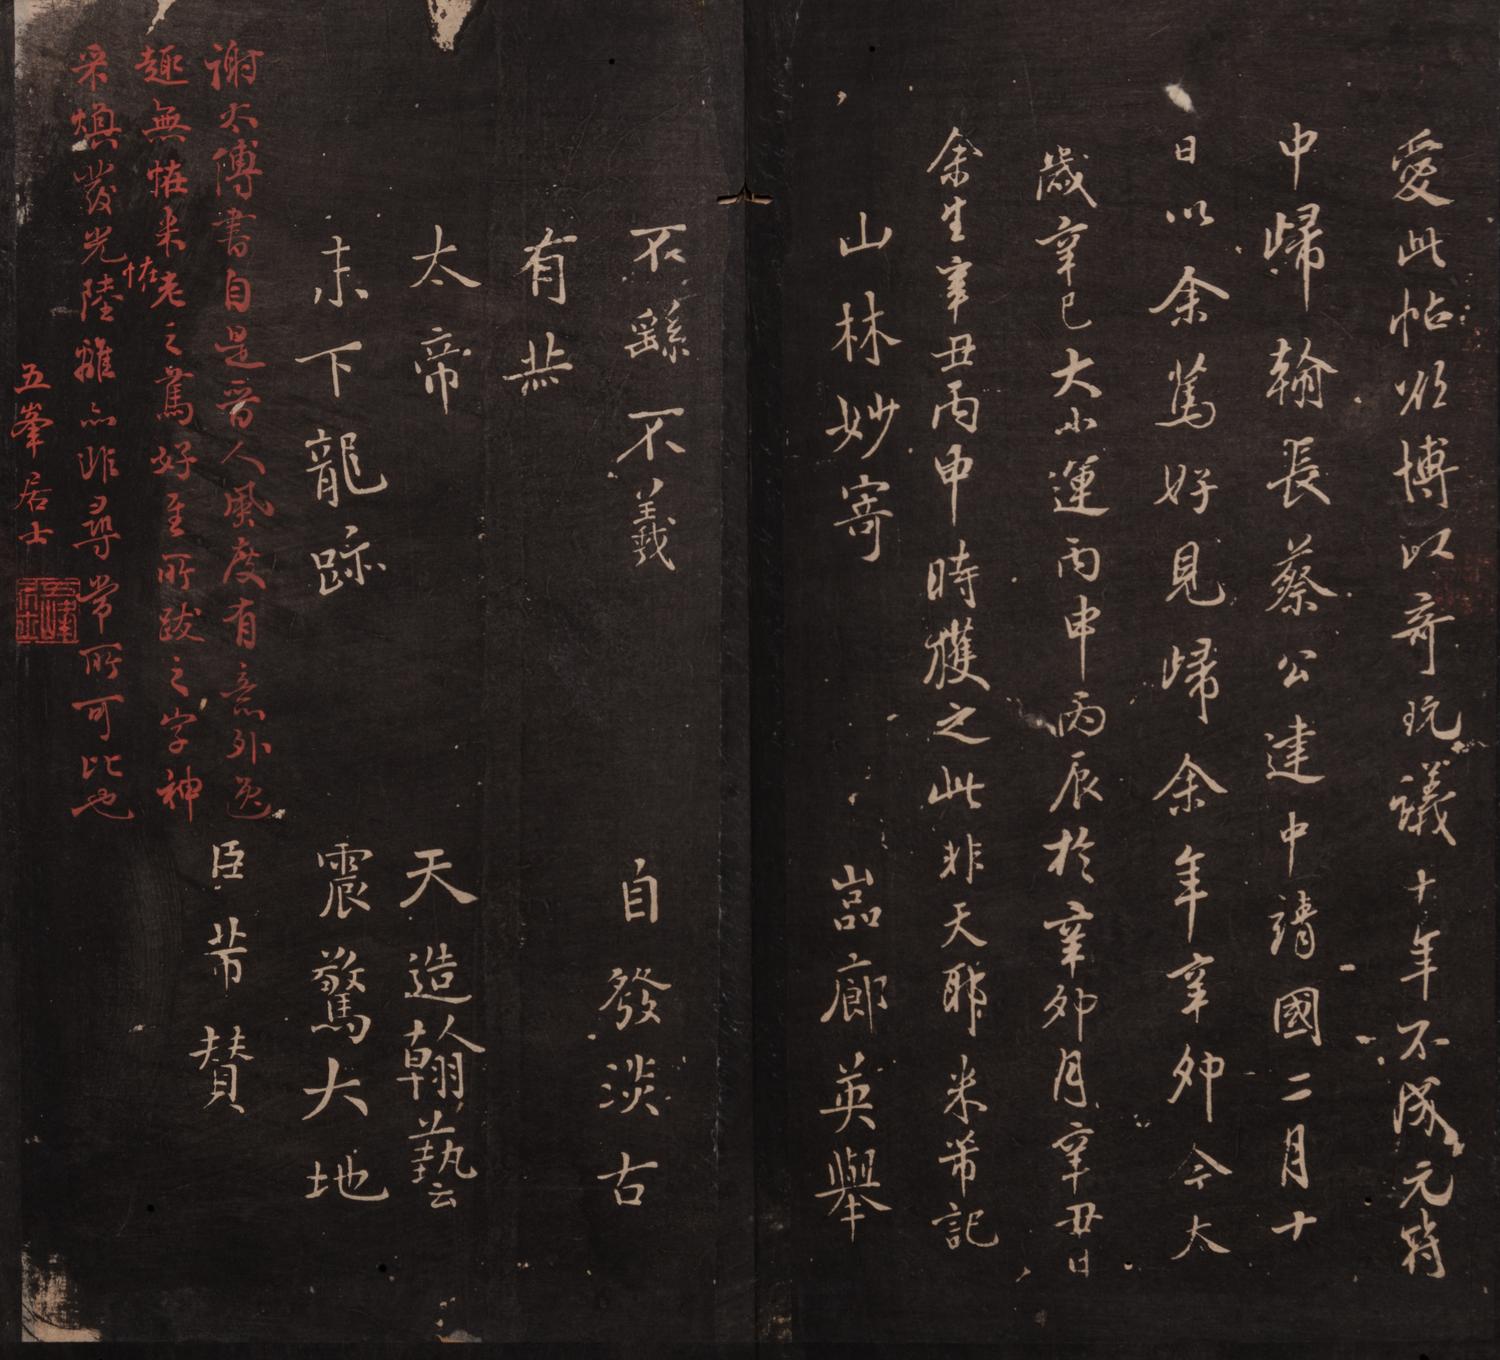 愛此帖欲博以奇玩議十年不成元符
中歸翰長蔡公建中靖國二月十
日以余篤好見歸余年辛卯今太
歲辛巳大小運丙申丙辰於辛卯月辛丑日
余生辛丑丙申時獲之此非天耶米芾記
山林妙寄 巖廊英舉
不繇不羲 自發淡古
有恭
太帝 天造翰藝
末下龍跡 震驚大地
臣芾贊
謝太傅書自是晉人風度有意外逸
趣無怪米老之篤好至所跋之字神
怪
采煥發光陸離亦非尋常所可比也
五峯居士